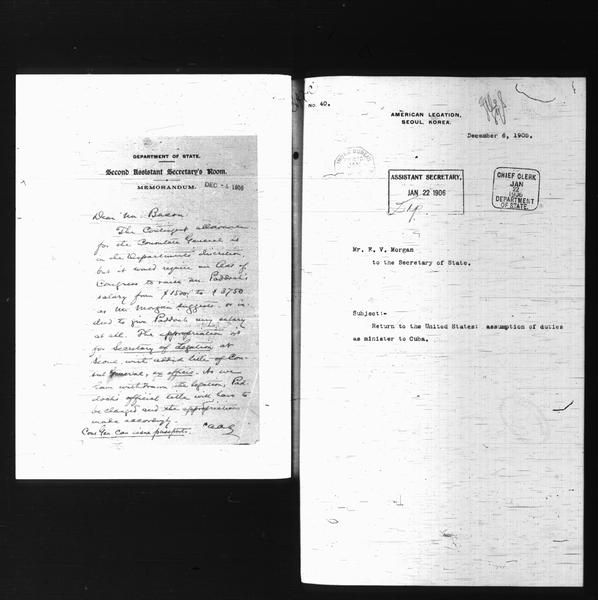 DEPARTMENT OF STATE.
Second Assistant Secretary's Room.
MEMORANDUM.
DEC - 4 1905
Dear Mr. Bacon:
The Contingent allowance
for the Consulate General is
in the Department's discretion,
but it would require an Act of
Congress to raise Mr Paddock's
salary from $1500 to $3750
as Mr. Morgan suggests, or in-
deed to give Paddock any salary
at all. The appropriation is
for Secretary of Legation at
Seoul, with added title of Con-
sul General, ex officio. As we
have withdrawn the legation, Pad-
dock's official title will have to
be changed and the appropriation
made accordingly.
Cons Gen Can issue passports.
AAA
NO. 40.
AMERICAN LEGATION,
SEOUL, KOREA.
December 6, 1905.
ASSISTANT SECRETARY,
JAN 22 1906
CHIEF CLERK
JAN
22
1906
DEPARTMENT
OF STATE.
Mr. E. V. Morgan
to the Secretary of State.
Subject:-
Return to the United States: assumption of duties
as minister to Cuba.